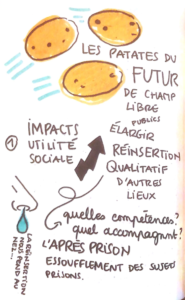 LES PATATES DU
FUTUR
DE CHAMP
LIBRE
PUBLICS
ÉLARGIR
① IMPACTS
UTILITÉ
SOCIALE
RÉINSERTION
QUALITATIF
D'AUTRES
LIEUX
quelles compétences?
quel accompagnt?
L'APRÈS PRISON
ESSOUFFLEMENT DES SUJETS
PRISONS.
LA RÉINSERTION
NOUS PEND AU
NEZ...